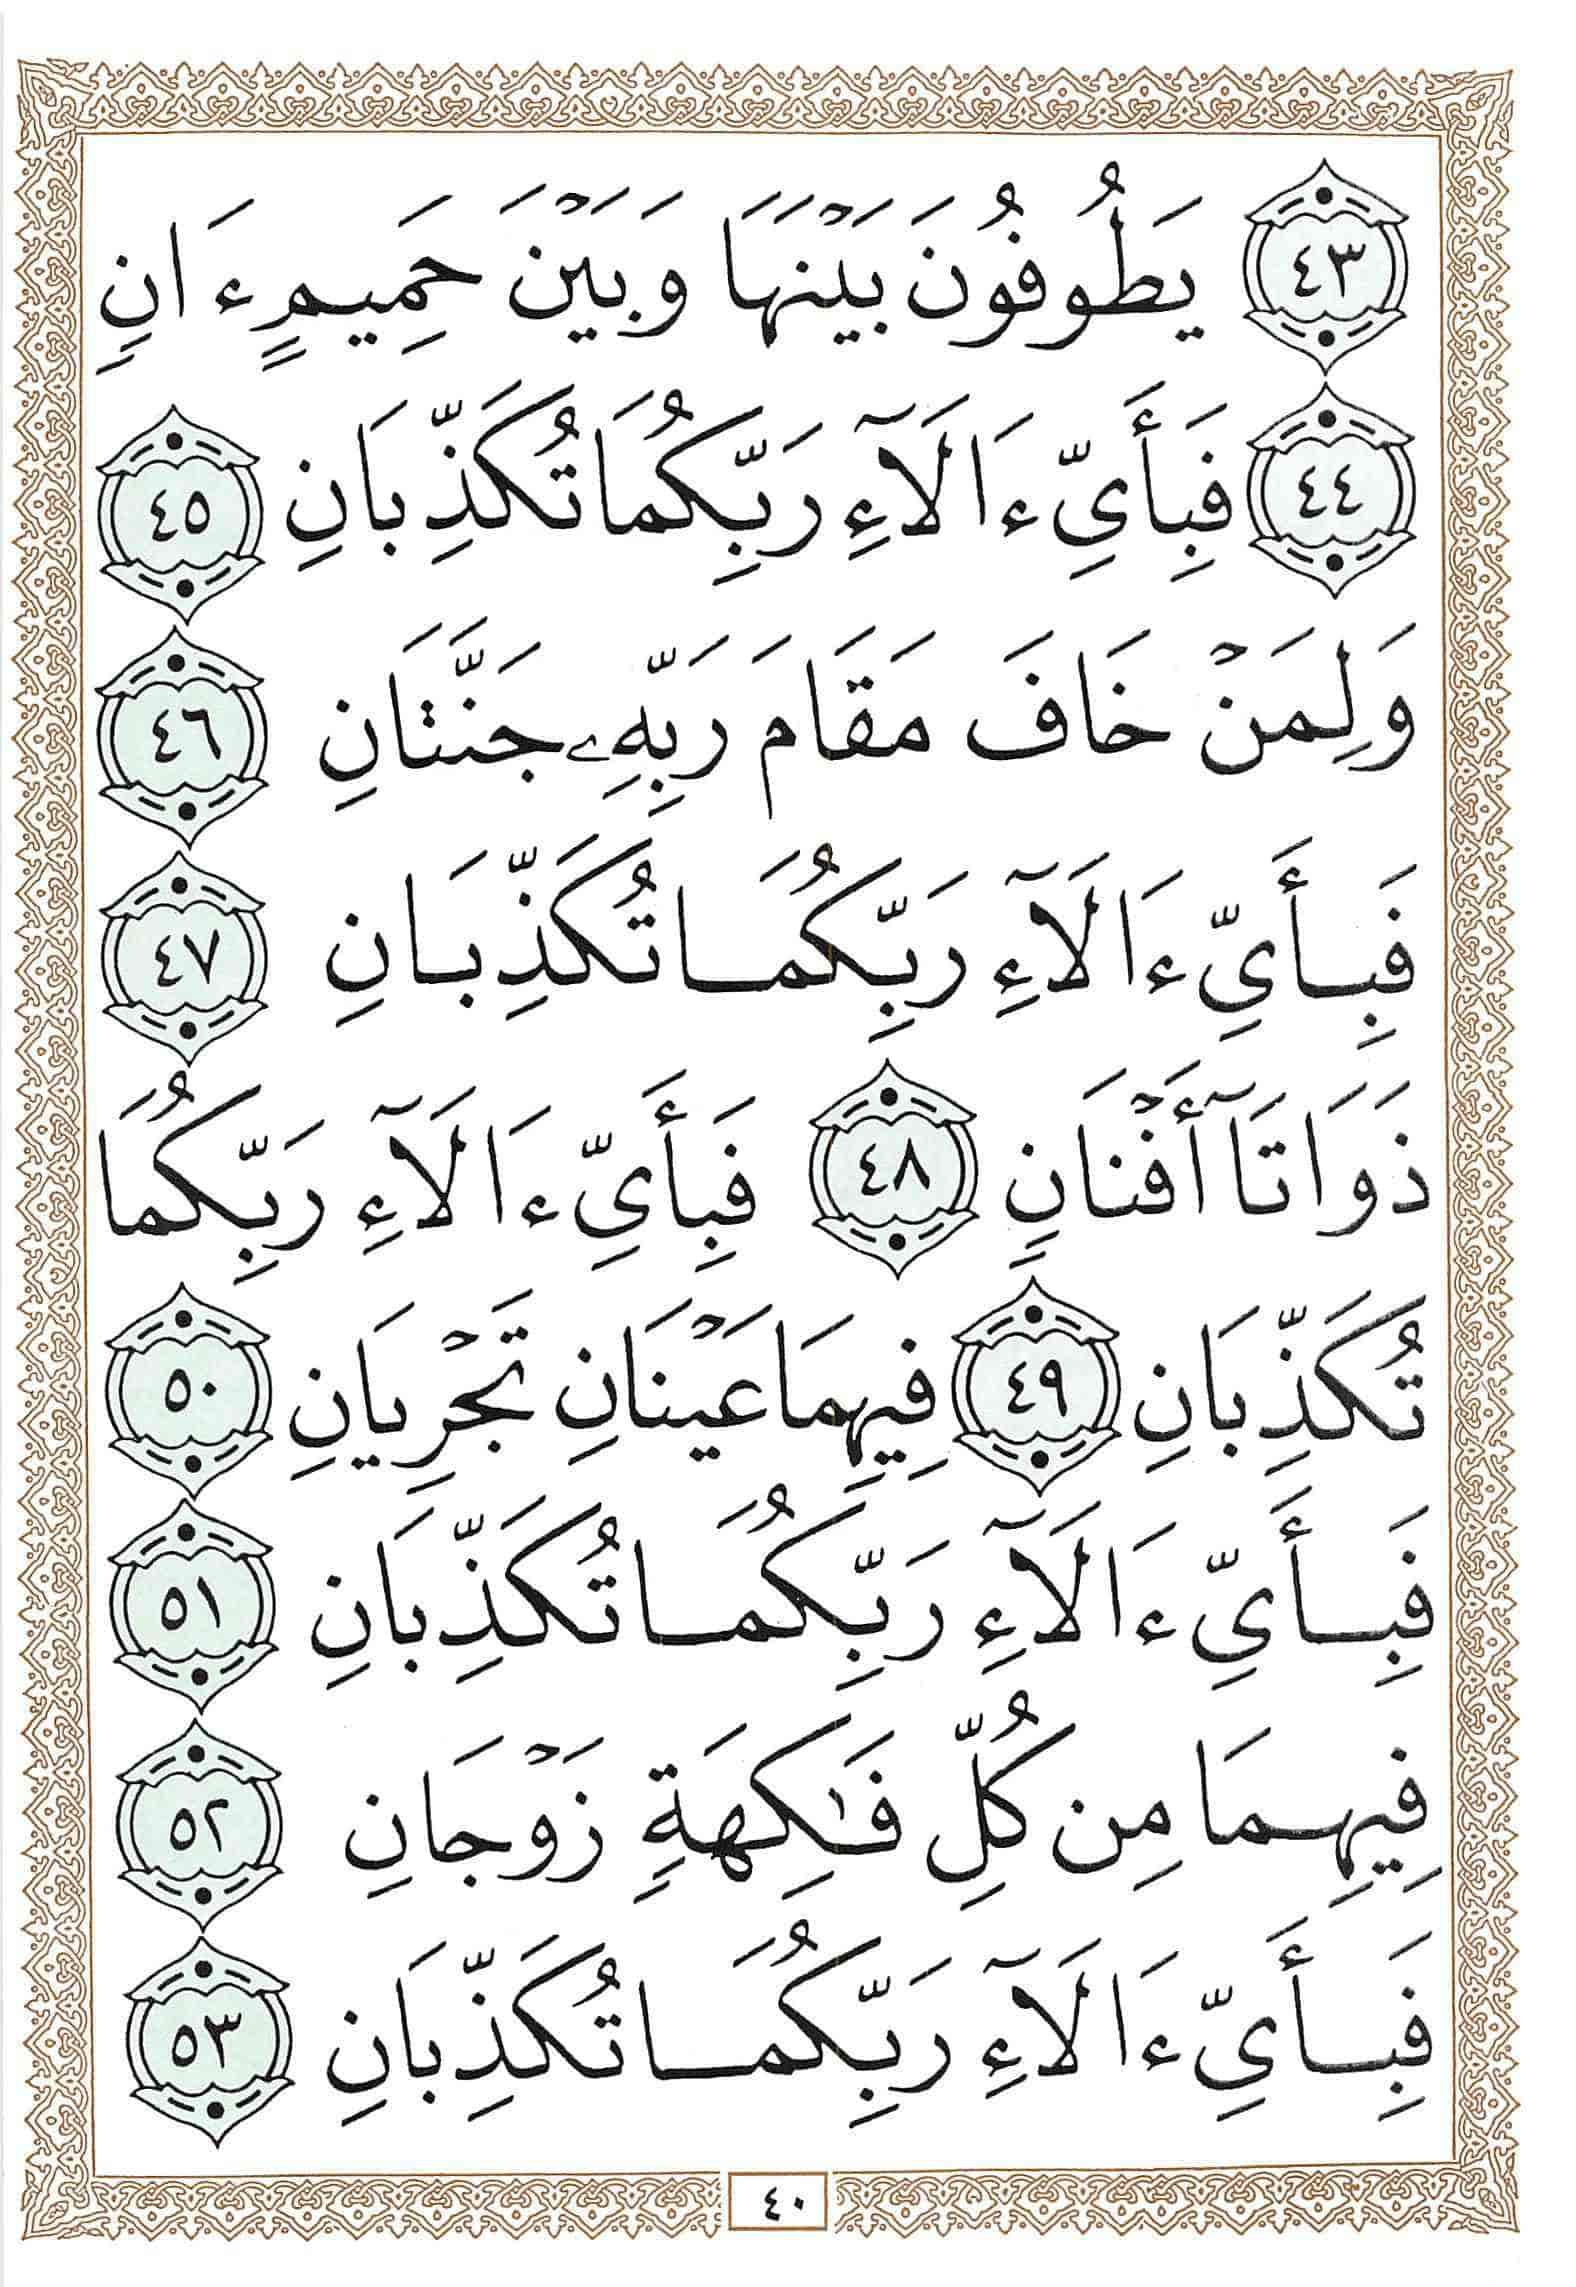 ٤٣ يَطُوفُونَ بَيْنَهَا وَبَيْنَ حَمِيمٍ ءَانٍ
٤٤ فَبِأَيِّ ءَالَآءِ رَبِّكُمَا تُكَذِّبَانِ ٤٥
وَلِمَنْ خَافَ مَقَامَ رَبِّهِۦ جَنَّتَانِ ٤٦
فَبِأَيِّ ءَالَآءِ رَبِّكُمَا تُكَذِّبَانِ ٤٧
ذَوَاتَآ أَفْنَانٍ ٤٨ فَبِأَيِّ ءَالَآءِ رَبِّكُمَا
تُكَذِّبَانِ ٤٩ فِيهِمَا عَيْنَانِ تَجْرِيَانِ ٥٠
فَبِأَيِّ ءَالَآءِ رَبِّكُمَا تُكَذِّبَانِ ٥١
فِيهِمَا مِن كُلِّ فَٰكِهَةٍ زَوْجَانِ ٥٢
فَبِأَيِّ ءَالَآءِ رَبِّكُمَا تُكَذِّبَانِ ٥٣
٤٠